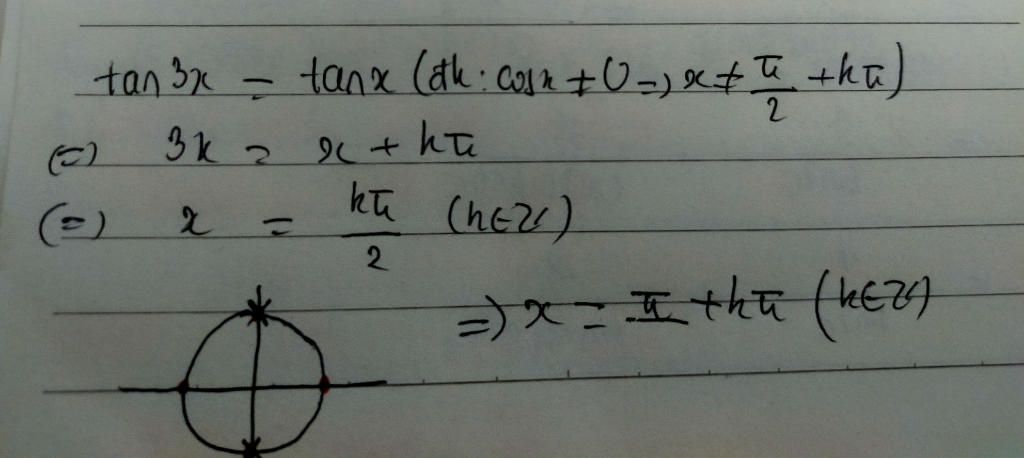 tan3x = tanx (đk: cosx ≠ 0 => x ≠ π/2 + kπ)
(=) 3x = x + kπ
(=) x = kπ/2 (k∈Z)
=) x = π + kπ (k∈Z)